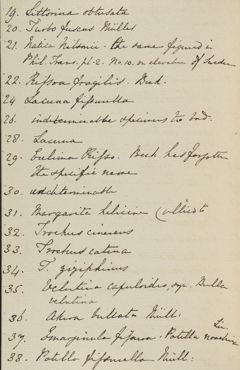 19. Littorina obtusata
20. Turbo fuscus Müller
21. Natica Nilsonii - the same figured in
Phil. Trans. pl. 2. No. 10. on elevation of Sweden
22. Rissoa fragilis. Beck.
24 Lacuna
26. indeterminable specimens too bad.
28. Lacuna
29. Eulima Risso. Beck has forgotten
the specific name
30. undeterminable
31. Margarita helicina (allied to
32. Trochus cinereus
33. Trochus catena
34. T. ziziphinus
35. Velutina capuloidea, syn. Bulla
velutina
36. Akera bullata Müll:
37. Emarginula fissura. Patella
Lin
38. Patella fissurella Müll: